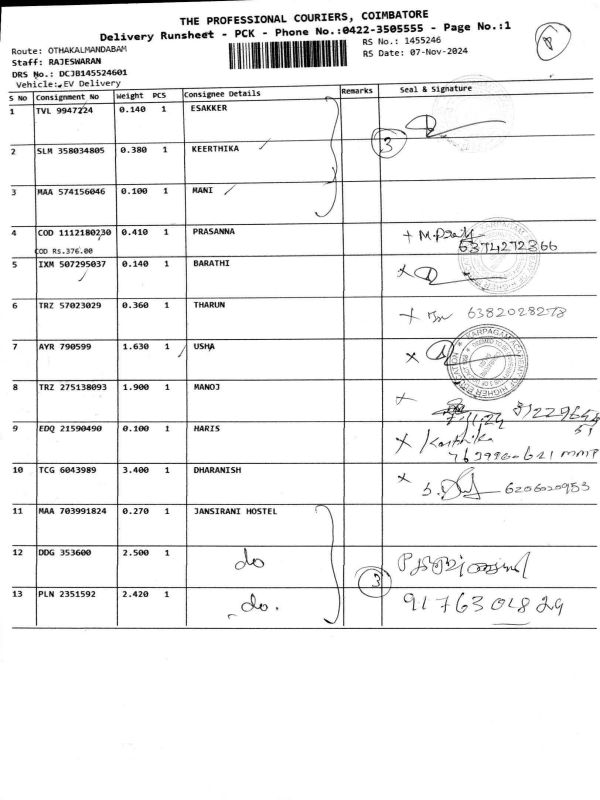 THE PROFESSIONAL COURIERS, COIMBATORE
Delivery Runsheet - PCK - Phone No.:0422-3505555 - Page No.:1
8
Route: OTHAKALMANDABAM
RS No.: 1455246
Staff: RAJESWARAN
RS Date: 07-Nov-2024
DRS No.: DCJB145524601
Vehicle: EV Delivery
S No Consignment No Weight PCS Consignee Details Remarks Seal & Signature
1 TVL 9947224 0.140 1 ESAKKER
3
2 SLM 358034805 0.380 1 KEERTHIKA
3 MAA 574156046 0.100 1 MANI
4 COD 1112180230 0.410 1 PRASANNA
6374272366
COD Rs.376.00
5 IXM 507295037 0.140 1 BARATHI
6 TRZ 57023029 0.360 1 THARUN 6382028278
7 AYR 790599 1.630 1 USHA
KARPAGAM ACADEMY OF HIGHER EDUCATION
8 TRZ 275138093 1.900 1 MANOJ
9 EDQ 21590490 0.100 1 HARIS Karthika
10 TCG 6043989 3.400 1 DHARANISH 6206020953
11 MAA 703991824 0.270 1 JANSIRANI HOSTEL
12 DDG 353600 2.500 1 do
3
13 PLN 2351592 2.420 1 do. 9176301829